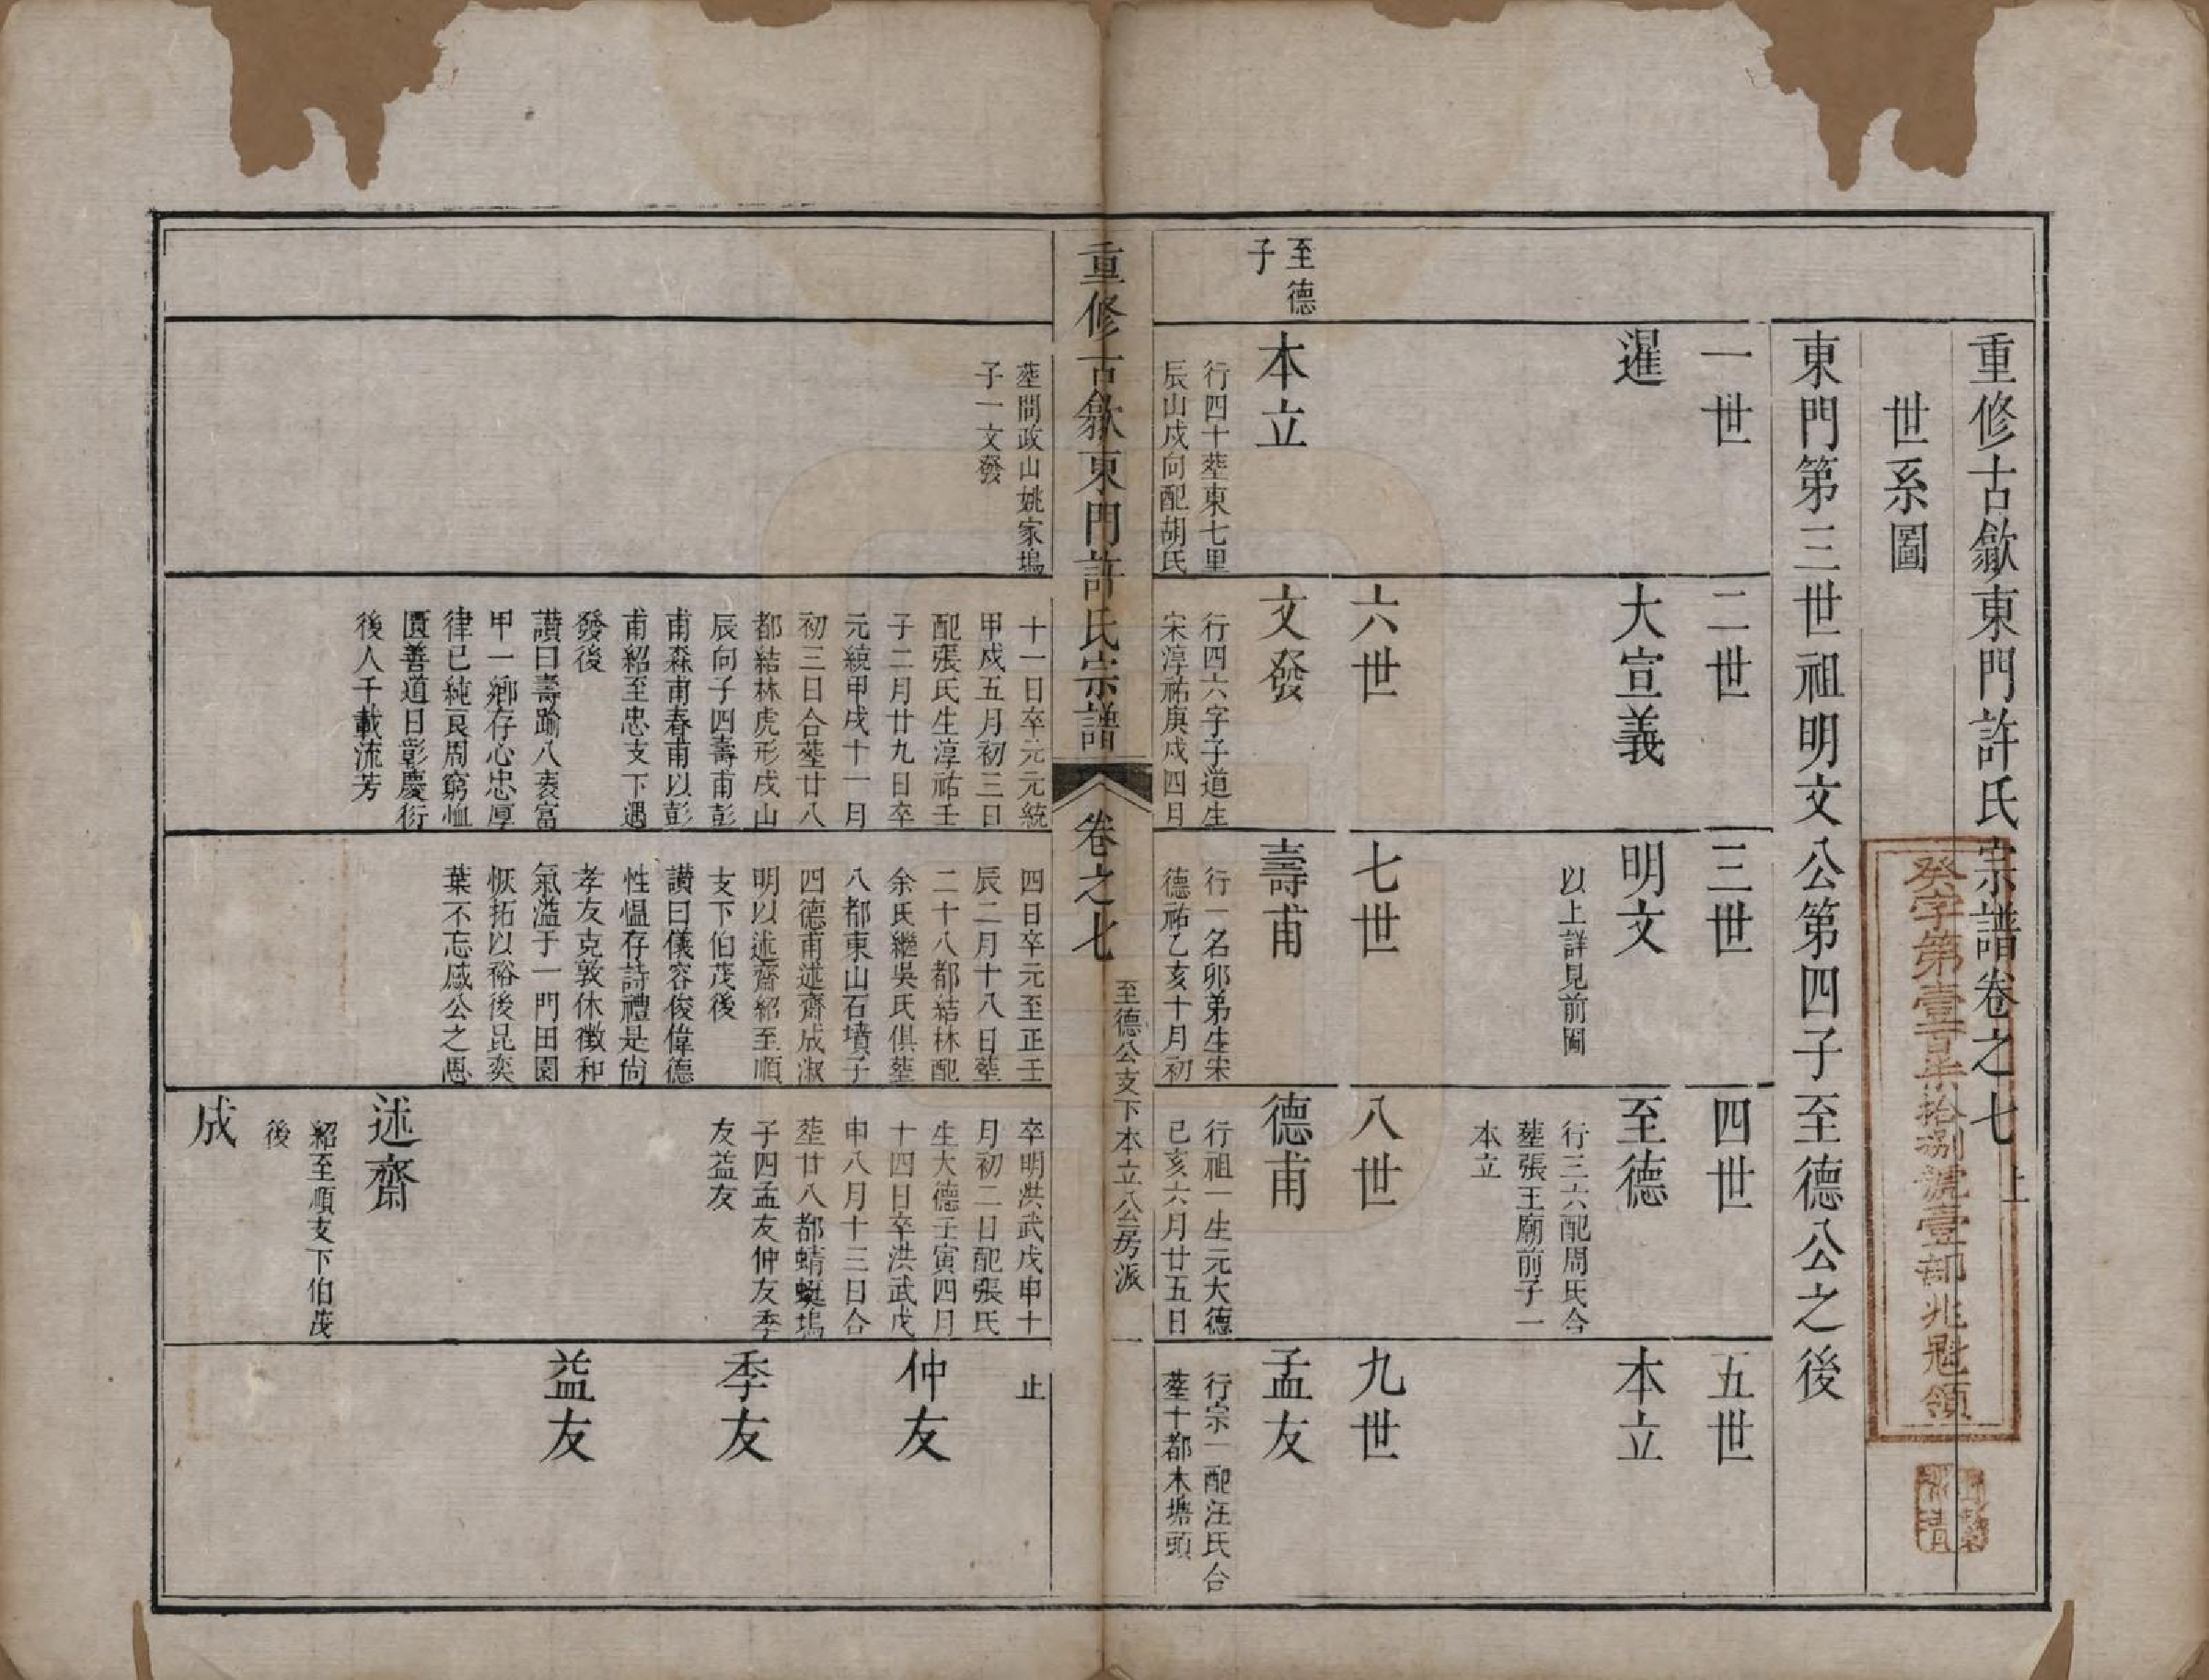 重修古歙東門許氏宗譜卷之七上
世系圖
東門第三世祖明文公第四子至德公之後
一世
二世
三世
四世
五世
暹
大宣義
明文
以上詳見前圖
至德
行三六配周氏合
塟張王廟前子一
本立
本立
六世
七世
八世
九世
至德
子
本立
行四十塟東七里
辰山戍向配胡氏
塟問政山姚家塢
子一文發
文發
行四六字子道生
宋淳祐庚戍四月
十一日卒元元統
甲戍五月初三日
配張氏生淳祐壬
子二月廿九日卒
元統甲戍十一月
初三日合塟廿八
都結林虎形戍山
辰向子四壽甫彭
甫森甫春甫以彭
甫紹至忠支下遇
發後
讃曰壽踰八袠富
甲一鄉存心忠厚
律已純良周窮恤
匱善道日彰慶衍
後人千載流芳
壽甫
行一名卯弟生宋
德祐乙亥十月初
四日卒元至正壬
辰二月十八日塟
二十八都結林配
余氏繼吳氏俱塟
八都東山石墳子
四德甫述齋成淑
明以述齋紹至順
支下伯茂後
讃曰儀容俊偉德
性愠存詩禮是尙
孝友克敦休徵和
氣溢于一門田園
恢拓以裕後昆奕
葉不忘感公之恩
德甫
行祖一生元大德
已亥六月廿五日
卒明洪武戊申十
月初二日配張氏
生大德壬寅四月
十四日卒洪武戊
申八月十三日合
塟廿八都蜻蜓塢
子四孟友仲友季
友益友
述齋
紹至順支下伯茂
後
成
孟友
行宗一配汪氏合
塟十都木塘頭
止
仲友
季友
益友
重修古歙東門許氏宗譜
卷之七
至德公支下本立公房派
一
癸字第壹百柒拾捌號壹部兆冠領